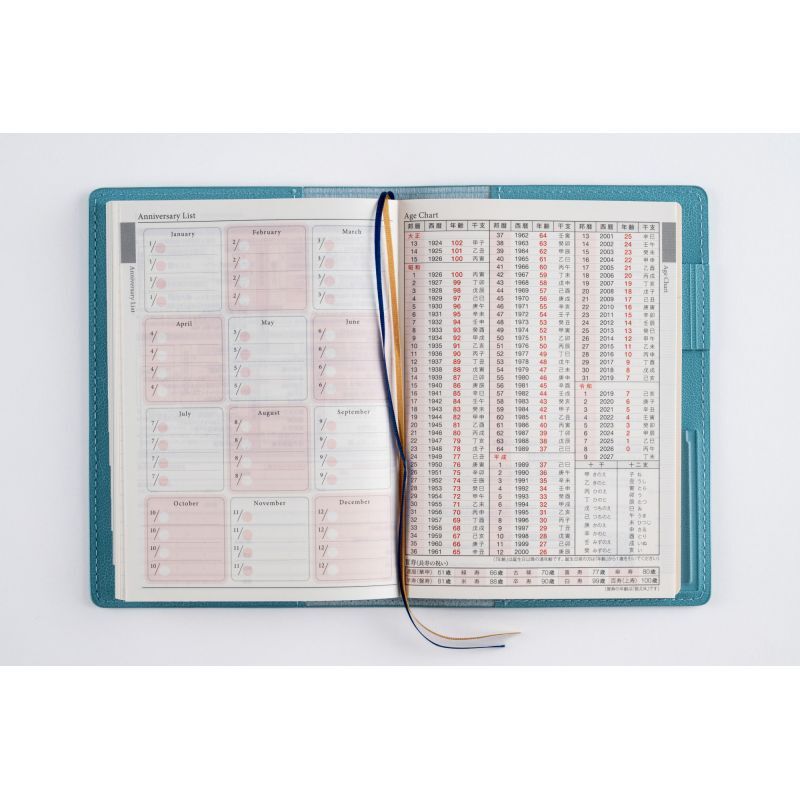 Anniversary List
January
1/
1/
1/
1/
February
2/
2/
2/
2/
March
3/
3/
3/
3/
April
4/
4/
4/
4/
May
5/
5/
5/
5/
June
6/
6/
6/
6/
July
7/
7/
7/
7/
August
8/
8/
8/
8/
September
9/
9/
9/
9/
October
10/
10/
10/
10/
November
11/
11/
11/
11/
December
12/
12/
12/
12/
Anniversary List
Age Chart
邦暦 西暦 年齢 干支
大正
13 1924 102 甲子
14 1925 101 乙丑
15 1926 100 丙寅
昭和
1 1926 100 丙寅
2 1927 99 丁卯
3 1928 98 戊辰
4 1929 97 己巳
5 1930 96 庚午
6 1931 95 辛未
7 1932 94 壬申
8 1933 93 癸酉
9 1934 92 甲戌
10 1935 91 乙亥
11 1936 90 丙子
12 1937 89 丁丑
13 1938 88 戊寅
14 1939 87 己卯
15 1940 86 庚辰
16 1941 85 辛巳
17 1942 84 壬午
18 1943 83 癸未
19 1944 82 甲申
20 1945 81 乙酉
21 1946 80 丙戌
22 1947 79 丁亥
23 1948 78 戊子
24 1949 77 己丑
25 1950 76 庚寅
26 1951 75 辛卯
27 1952 74 壬辰
28 1953 73 癸巳
29 1954 72 甲午
30 1955 71 乙未
31 1956 70 丙申
32 1957 69 丁酉
33 1958 68 戊戌
34 1959 67 己亥
35 1960 66 庚子
36 1961 65 辛丑
邦暦 西暦 年齢 干支
37 1962 64 壬寅
38 1963 63 癸卯
39 1964 62 甲辰
40 1965 61 乙巳
41 1966 60 丙午
42 1967 59 丁未
43 1968 58 戊申
44 1969 57 己酉
45 1970 56 庚戌
46 1971 55 辛亥
47 1972 54 壬子
48 1973 53 癸丑
49 1974 52 甲寅
50 1975 51 乙卯
51 1976 50 丙辰
52 1977 49 丁巳
53 1978 48 戊午
54 1979 47 己未
55 1980 46 庚申
56 1981 45 辛酉
57 1982 44 壬戌
58 1983 43 癸亥
59 1984 42 甲子
60 1985 41 乙丑
61 1986 40 丙寅
62 1987 39 丁卯
63 1988 38 戊辰
64 1989 37 己巳
平成
1 1989 37 己巳
2 1990 36 庚午
3 1991 35 辛未
4 1992 34 壬申
5 1993 33 癸酉
6 1994 32 甲戌
7 1995 31 乙亥
8 1996 30 丙子
9 1997 29 丁丑
10 1998 28 戊寅
11 1999 27 己卯
12 2000 26 庚辰
邦暦 西暦 年齢 干支
13 2001 25 辛巳
14 2002 24 壬午
15 2003 23 癸未
16 2004 22 甲申
17 2005 21 乙酉
18 2006 20 丙戌
19 2007 19 丁亥
20 2008 18 戊子
21 2009 17 己丑
22 2010 16 庚寅
23 2011 15 辛卯
24 2012 14 壬辰
25 2013 13 癸巳
26 2014 12 甲午
27 2015 11 乙未
28 2016 10 丙申
29 2017 9 丁酉
30 2018 8 戊戌
31 2019 7 己亥
令和
1 2019 7 己亥
2 2020 6 庚子
3 2021 5 辛丑
4 2022 4 壬寅
5 2023 3 癸卯
6 2024 2 甲辰
7 2025 1 乙巳
8 2026 0 丙午
9 2027 丁未
十干 十二支
甲 きのえ 子 ね
乙 きのと 丑 うし
丙 ひのえ 寅 とら
丁 ひのと 卯 う
戊 つちのえ 辰 たつ
己 つちのと 巳 み
庚 かのえ 午 うま
辛 かのと 未 ひつじ
壬 みずのえ 申 さる
癸 みずのと 酉 とり
戌 いぬ
亥 い
賀寿(長寿の祝い)
還暦(華甲) 61歳 緑寿 66歳 古稀 70歳 喜寿 77歳 傘寿 80歳
半寿(盤寿) 81歳 米寿 88歳 卒寿 90歳 白寿 99歳 百寿(上寿) 100歳
Age Chart